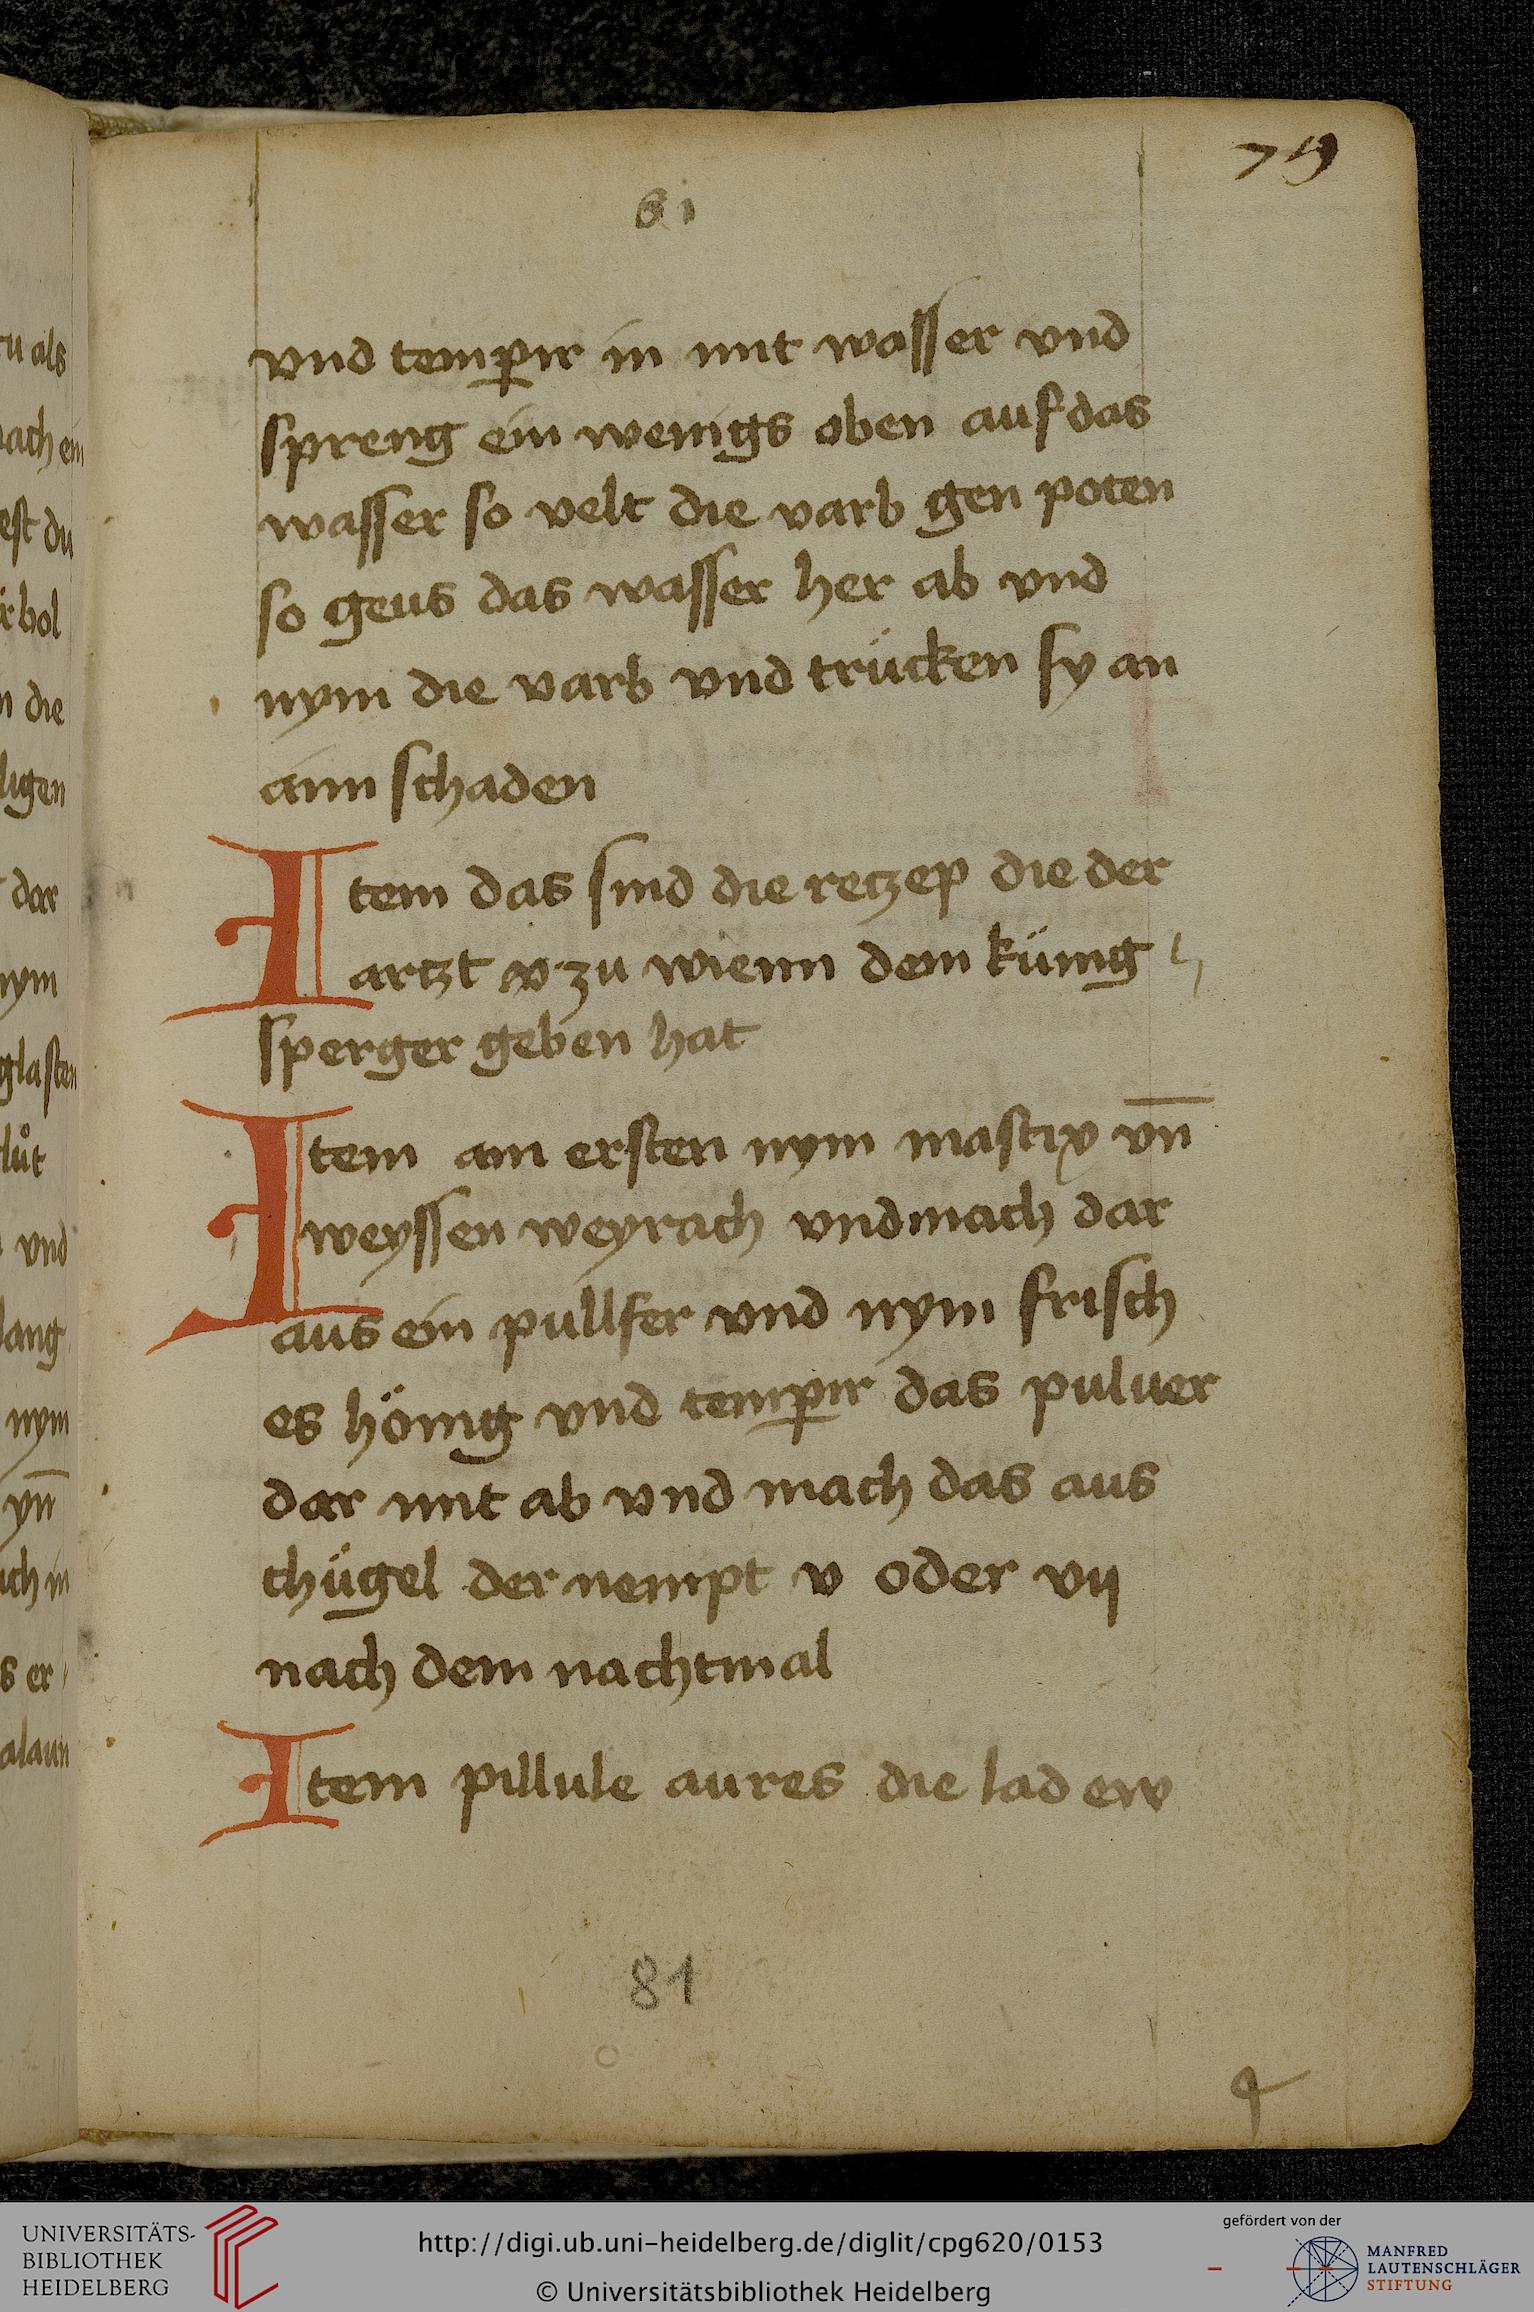 79
81
vnd temꝑir in mit wasser vnd
spreng ein wenigs oben auf das
wasser so velt die varb gen poten
so geus das wasser her ab vnd
nym die varb vnd trücken sy an
aim schaden
Item das sind die retzep die der
artzt zu wienn dem künig
sperger geben hat
Item am ersten nym mastix vn̄
weyssen weyrach vnd mach dar
aus ein pullfer vnd nym frisch
es hönig vnd temꝑir das puluer
dar mit ab vnd mach das aus
chügel der nempt v oder vij
nach dem nachtmal
Item pillule aures die lad ew
81
UNIVERSITÄTS-
BIBLIOTHEK
HEIDELBERG
http://digi.ub.uni-heidelberg.de/diglit/cpg620/0153
© Universitätsbibliothek Heidelberg
gefördert von der
MANFRED
LAUTENSCHLÄGER
STIFTUNG